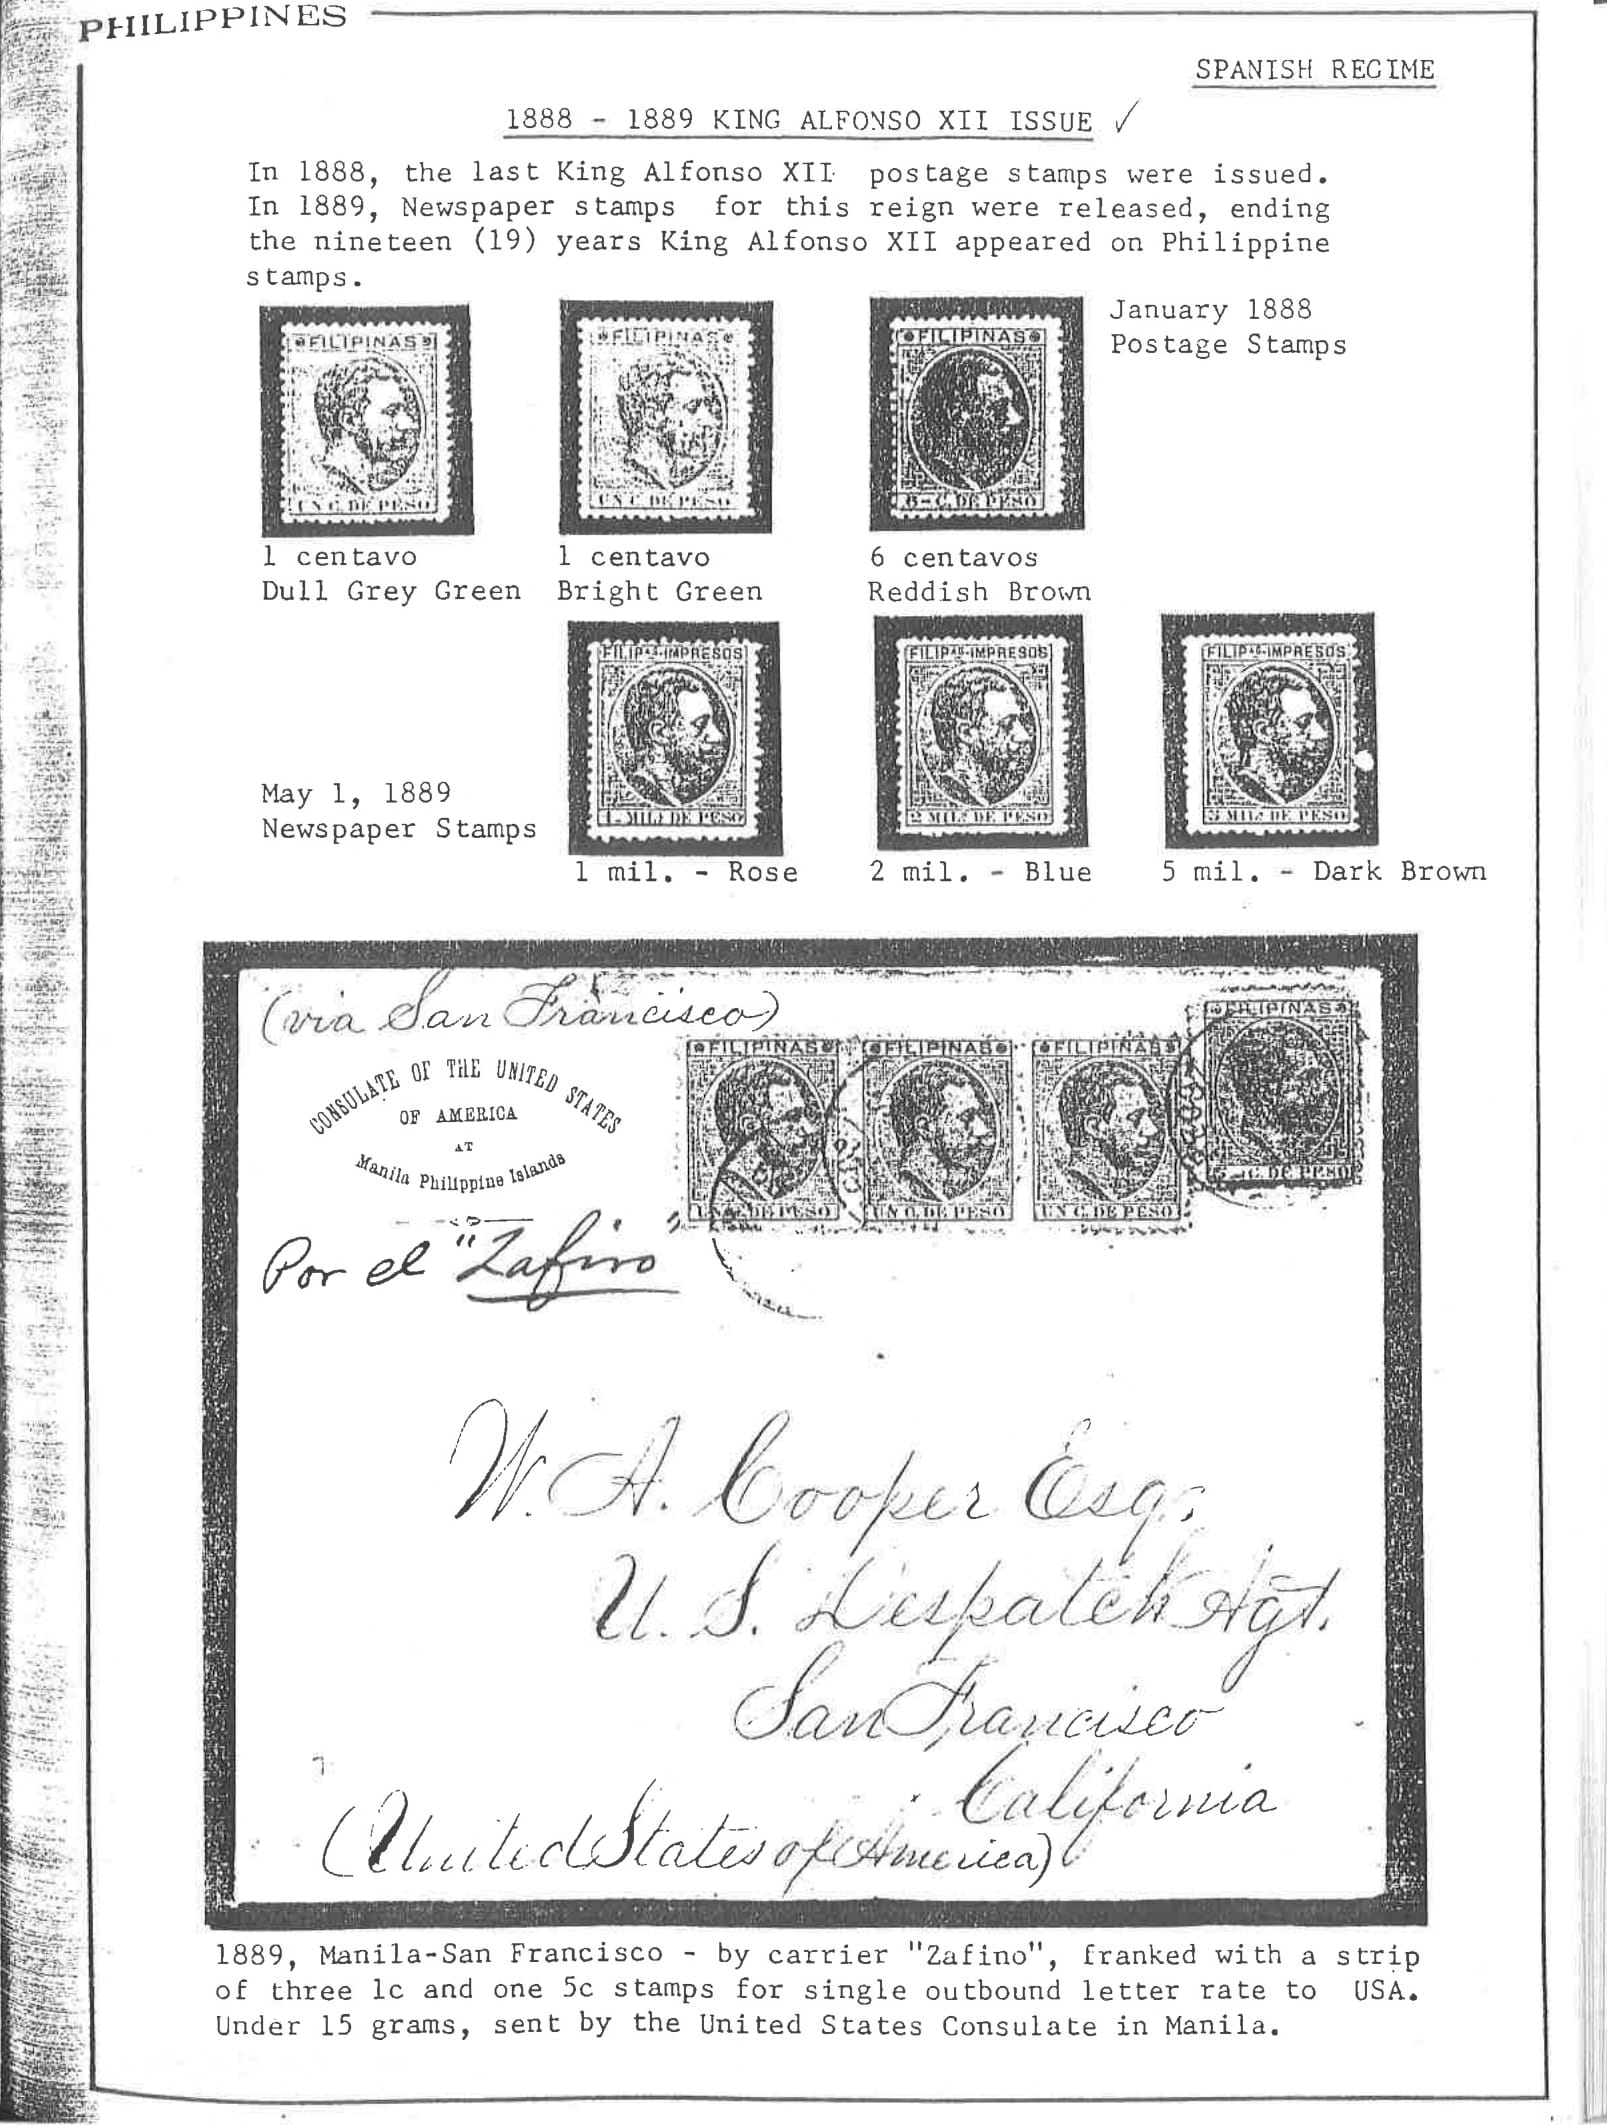 PHILIPPINES
SPANISH REGIME
1888 - 1889 KING ALFONSO XII ISSUE ✓
In 1888, the last King Alfonso XII postage stamps were issued.
In 1889, Newspaper stamps for this reign were released, ending
the nineteen (19) years King Alfonso XII appeared on Philippine
stamps.
January 1888
Postage Stamps
FILIPINAS
UN C. DE PESO
FILIPINAS
UN C. DE PESO
FILIPINAS
6 - C. DE PESO
1 centavo
Dull Grey Green
1 centavo
Bright Green
6 centavos
Reddish Brown
FILIPAS-IMPRESOS
1 - MILA DE PESO
FILIPAS-IMPRESOS
2 MILS DE PESO
FILIPAS-IMPRESOS
5 MILS DE PESO
May 1, 1889
Newspaper Stamps
1 mil. - Rose
2 mil. - Blue
5 mil. - Dark Brown
(via San Francisco)
CONSULATE OF THE UNITED STATES
OF AMERICA
AT
Manila Philippine Islands
FILIPINAS
UN C. DE PESO
FILIPINAS
UN C. DE PESO
FILIPINAS
UN C. DE PESO
FILIPINAS
5 - C. DE PESO
Por el "Zafiro"
W. A. Cooper Esq.
U. S. Despatch Agt.
San Francisco
California
(United States of America)
1889, Manila-San Francisco - by carrier "Zafino", franked with a strip
of three 1c and one 5c stamps for single outbound letter rate to USA.
Under 15 grams, sent by the United States Consulate in Manila.